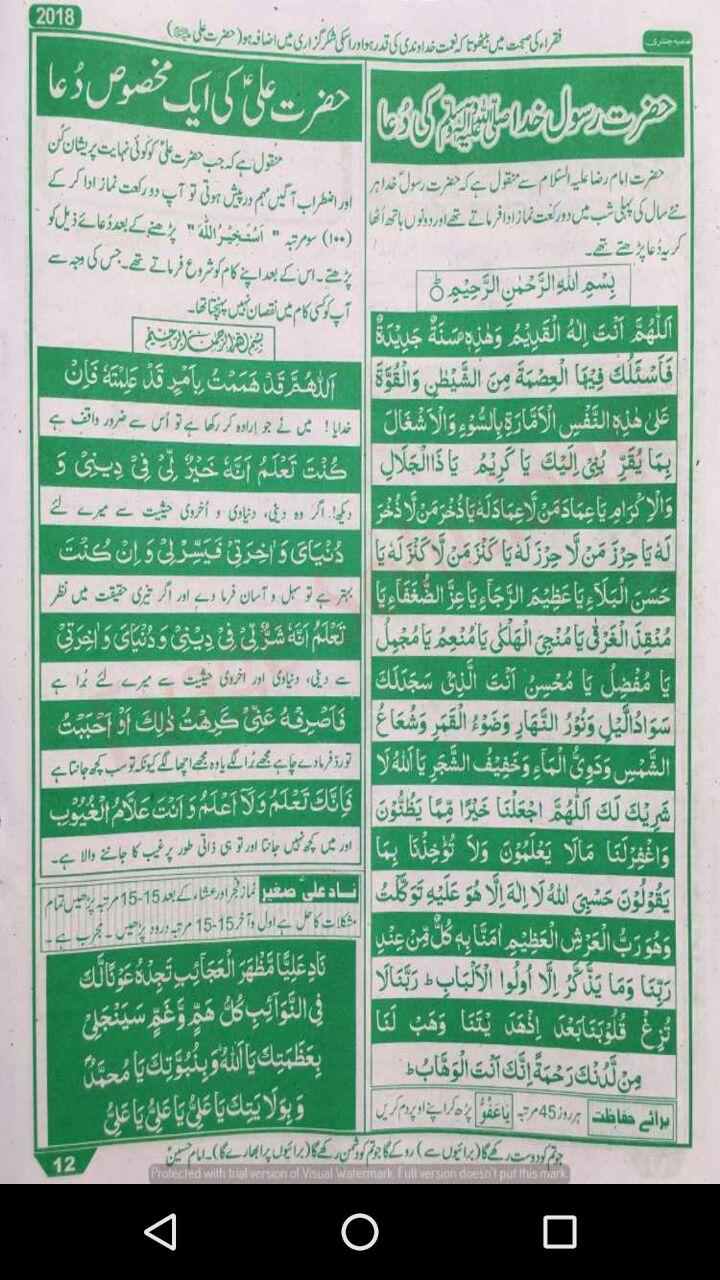 2018
فقراء کی صحبت میں بیٹھو تاکہ نعمت خداوندی کی قدر ہو اور اسکی شکر گزاری میں اضافہ ہو (حضرت علی
حضرت رسول خدا ﷺ کی دُعا
حضرت امام رضا علیہ السلام سے منقول ہے کہ حضرت رسول خدا ہر
نئے سال کی پہلی شب میں دو رکعت نماز ادا فرماتے تھے اور دونوں ہاتھ اُٹھا
کر یہ دُعا پڑھتے تھے۔
بِسْمِ اللهِ الرَّحْمٰنِ الرَّحِيْمِ
اَللّٰهُمَّ اَنْتَ اِلٰهُ الْقَدِيْمُ وَهٰذِهٖ سَنَةٌ جَدِيْدَةٌ
فَاَسْئَلُكَ فِيْهَا الْعِصْمَةَ مِنَ الشَّيْطٰنِ وَالْقُوَّةَ
عَلٰى هٰذِهِ النَّفْسِ الْاَمَّارَةِ بِالسُّوْءِ وَالْاِشْتِغَالَ
بِمَا يُقَرِّ بُنِىْ اِلَيْكَ يَا كَرِيْمُ يَا ذَاالْجَلَالِ
وَالْاِكْرَامِ يَاعِمَادَ مَنْ لَّا عِمَادَ لَهٗ يَا ذُخْرَ مَنْ لَّا ذُخْرَ
لَهٗ يَا حِرْزَ مَنْ لَّا حِرْزَ لَهٗ يَا كَنْزَ مَنْ لَّا كَنْزَ لَهٗ يَا
حَسَنَ الْبَلَاءِ يَا عَظِيْمَ الرَّجَآءِ يَا عِزَّ الضُّعَفَآءِ يَا
مُنْقِذَ الْغَرْقٰى يَا مُنْجِىَ الْهَلْكٰى يَا مُنْعِمُ يَا مُجْمِلُ
يَا مُفْضِلُ يَا مُحْسِنُ اَنْتَ الَّذِىْ سَجَدَ لَكَ
سَوَادُ الَّيْلِ وَنُوْرُ النَّهَارِ وَضَوْءُ الْقَمَرِ وَشُعَاعُ
الشَّمْسِ وَدَوِىُّ الْمَآءِ وَخَفِيْفُ الشَّجَرِ يَا اَللهُ لَا
شَرِيْكَ لَكَ اَللّٰهُمَّ اجْعَلْنَا خَيْرًا مِّمَّا يَظُنُّوْنَ
وَاغْفِرْلَنَا مَالَا يَعْلَمُوْنَ وَلَا تُؤَاخِذْنَا بِمَا
يَقُوْلُوْنَ حَسْبِىَ اللهُ لَا اِلٰهَ اِلَّا هُوَ عَلَيْهِ تَوَكَّلْتُ
وَهُوَ رَبُّ الْعَرْشِ الْعَظِيْمِ اٰمَنَّا بِهٖ كُلٌّ مِّنْ عِنْدِ
رَبِّنَا وَمَا يَذَّكَّرُ اِلَّا اُولُوا الْاَلْبَابِ رَبَّنَا لَا
تُزِغْ قُلُوْبَنَا بَعْدَ اِذْهَدَ يْتَنَا وَهَبْ لَنَا
مِنْ لَّدُنْكَ رَحْمَةً اِنَّكَ اَنْتَ الْوَهَّابُ
برائے حفاظت ہر روز 45 مرتبہ يَا غَفُوْرُ پڑھ کر اپنے اوپر دم کریں
حضرت علیؑ کی ایک مخصوص دُعا
منقول ہے کہ جب حضرت علیؑ کو کوئی نہایت پریشان کُن
اور اضطراب آگیں مہم درپیش ہوتی تو آپ دو رکعت نماز ادا کر کے
(۱۰۰) سو مرتبہ " اَسْتَخِيْرُ اللهَ " پڑھنے کے بعد دُعائے ذیل کو
پڑھتے۔ اس کے بعد اپنے کام کو شروع فرماتے تھے۔ جس کی وجہ سے
آپ کو کسی کام میں نقصان نہیں پہنچتا تھا۔
بسم اللہ الرحمن الرحیم
اَللّٰهُمَّ قَدْ هَمَمْتُ بِاَمْرٍ قَدْ عَلِمْتَهٗ فَاِنْ
خدایا ! میں نے جو ارادہ کر رکھا ہے تو اُس سے ضرور واقف ہے
كُنْتَ تَعْلَمُ اَنَّهٗ خَيْرٌ لِّىْ فِىْ دِيْنِىْ وَ
دیکھا! اگر وہ دینی، دنیاوی و اُخروی حیثیت سے میرے لئے
دُنْيَاىَ وَ اٰخِرَتِىْ فَيَسِّرْلِىْ وَ اِنْ كُنْتَ
بہتر ہے تو سہل و آسان فرما دے اور اگر تیری حقیقت میں نظر
تَعْلَمُ اَنَّهٗ شَرٌّ لِّىْ فِىْ دِيْنِىْ وَ دُنْيَاىَ وَ اٰخِرَتِىْ
سے دینی، دنیاوی اور اخروی حیثیت سے میرے لئے بُرا ہے
فَاصْرِفْهُ عَنِّىْ كَرِهْتُ ذٰلِكَ اَوْ اَحْبَبْتُ
تو رد فرما دے چاہے مجھے بُرا لگے یا وہ مجھے اچھا لگے کیونکہ تو سب کچھ جانتا ہے
فَاِنَّكَ تَعْلَمُ وَلَآ اَعْلَمُ وَ اَنْتَ عَلَّامُ الْغُيُوْبِ
اور میں کچھ نہیں جانتا اور تو ہی ذاتی طور پر غیب کا جاننے والا ہے۔
ناد علیؑ صغیر نماز فجر اور عشاء کے بعد 15-15 مرتبہ پڑھیں تمام
مشکلات کا حل ہے اول و آخر 15-15 مرتبہ درود پڑھیں۔ مجرب ہے۔
نَادِ عَلِيًّا مَّظْهَرَ الْعَجَآئِبِ تَجِدْهُ عَوْنًا لَّكَ
فِى النَّوَآئِبِ كُلُّ هَمٍّ وَّ غَمٍّ سَيَنْجَلِىْ
بِعَظَمَتِكَ يَا اَللهُ وَ بِنُبُوَّتِكَ يَا مُحَمَّدُ
وَ بِوَلَا يَتِكَ يَا عَلِىُّ يَا عَلِىُّ يَا عَلِىُّ
جو تم کو دوست رکھے گا (برائیوں سے) روکے گا جو تم کو دشمن رکھے گا (برائیوں پر ابھارے گا)۔ امام حسینؑ
12
Protected with trial version of Visual Watermark. Full version doesn't put this mark.